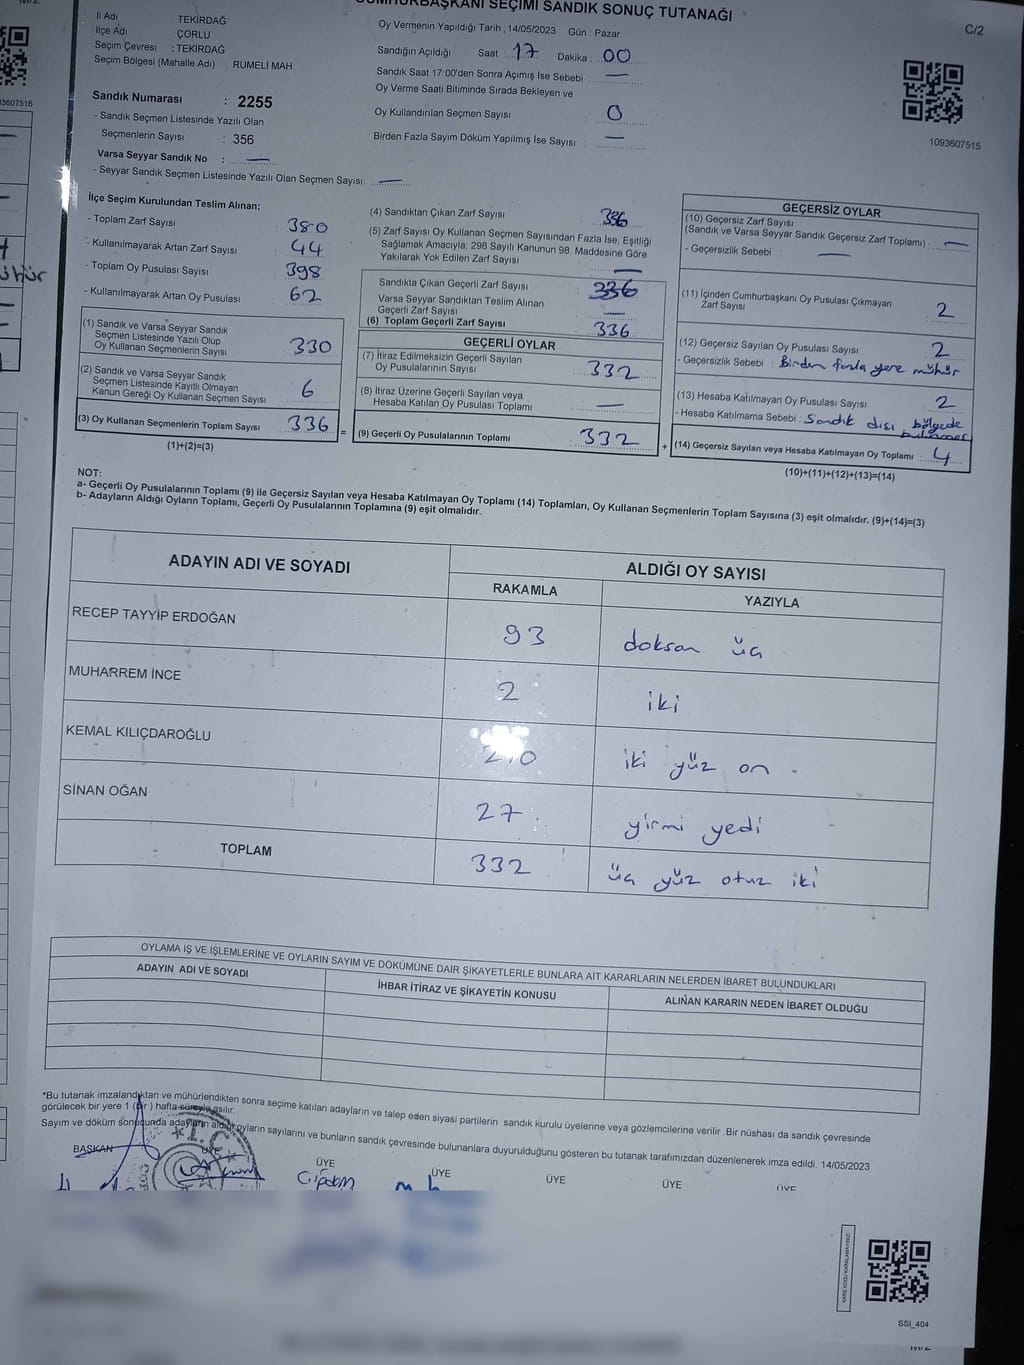 CUMHURBAŞKANI SEÇİMİ SANDIK SONUÇ TUTANAĞI
C/2
İl Adı : TEKİRDAĞ
İlçe Adı : ÇORLU
Seçim Çevresi : TEKİRDAĞ
Seçim Bölgesi (Mahalle Adı) : RUMELİ MAH.
Oy Vermenin Yapıldığı Tarih : 14/05/2023 Gün : Pazar
Sandığın Açıldığı Saat : 17 Dakika : 00
Sandık Saat 17:00'den Sonra Açımış İse Sebebi : —
Oy Verme Saati Bitiminde Sırada Bekleyen ve
Oy Kullandırılan Seçmen Sayısı : 0
Birden Fazla Sayım Döküm Yapılmış İse Sayısı : —
1093607515
Sandık Numarası : 2255
- Sandık Seçmen Listesinde Yazılı Olan
Seçmenlerin Sayısı : 356
Varsa Seyyar Sandık No : —
- Seyyar Sandık Seçmen Listesinde Yazılı Olan Seçmen Sayısı: —
İlçe Seçim Kurulundan Teslim Alınan;
- Toplam Zarf Sayısı 380
- Kullanılmayarak Artan Zarf Sayısı 44
- Toplam Oy Pusulası Sayısı 398
- Kullanılmayarak Artan Oy Pusulası 62
(1) Sandık ve Varsa Seyyar Sandık
Seçmen Listesinde Yazılı Olup
Oy Kullanan Seçmenlerin Sayısı 330
(2) Sandık ve Varsa Seyyar Sandık
Seçmen Listesinde Kayıtlı Olmayan
Kanun Gereği Oy Kullanan Seçmen Sayısı 6
(3) Oy Kullanan Seçmenlerin Toplam Sayısı 336
(1)+(2)=(3)
(4) Sandıktan Çıkan Zarf Sayısı 336
(5) Zarf Sayısı Oy Kullanan Seçmen Sayısından Fazla İse, Eşitliği
Sağlamak Amacıyla, 298 Sayılı Kanunun 98. Maddesine Göre
Yakılarak Yok Edilen Zarf Sayısı —
Sandıkta Çıkan Geçerli Zarf Sayısı 336
Varsa Seyyar Sandıktan Teslim Alınan
Geçerli Zarf Sayısı —
(6) Toplam Geçerli Zarf Sayısı 336
GEÇERLİ OYLAR
(7) İtiraz Edilmeksizin Geçerli Sayılan
Oy Pusulalarının Sayısı 332
(8) İtiraz Üzerine Geçerli Sayılan veya
Hesaba Katılan Oy Pusulası Toplamı —
= (9) Geçerli Oy Pusulalarının Toplamı 332
GEÇERSİZ OYLAR
(10) Geçersiz Zarf Sayısı
(Sandık ve Varsa Seyyar Sandık Geçersiz Zarf Toplamı) : —
- Geçersizlik Sebebi : —
(11) İçinden Cumhurbaşkanı Oy Pusulası Çıkmayan
Zarf Sayısı 2
(12) Geçersiz Sayılan Oy Pusulası Sayısı 2
- Geçersizlik Sebebi : Birden fazla yere mühür
(13) Hesaba Katılmayan Oy Pusulası Sayısı 2
- Hesaba Katılmama Sebebi : Sandık dışı bölgede
+ (14) Geçersiz Sayılan veya Hesaba Katılmayan Oy Toplamı : 4
(10)+(11)+(12)+(13)=(14)
NOT:
a- Geçerli Oy Pusulalarının Toplamı (9) ile Geçersiz Sayılan veya Hesaba Katılmayan Oy Toplamı (14) Toplamları, Oy Kullanan Seçmenlerin Toplam Sayısına (3) eşit olmalıdır. (9)+(14)=(3)
b- Adayların Aldığı Oyların Toplamı, Geçerli Oy Pusulalarının Toplamına (9) eşit olmalıdır.
ADAYIN ADI VE SOYADI
ALDIĞI OY SAYISI
RAKAMLA YAZIYLA
RECEP TAYYİP ERDOĞAN 93 doksan üç
MUHARREM İNCE 2 iki
KEMAL KILIÇDAROĞLU 210 iki yüz on
SİNAN OĞAN 27 yirmi yedi
TOPLAM 332 üç yüz otuz iki
OYLAMA İŞ VE İŞLEMLERİNE VE OYLARIN SAYIM VE DÖKÜMÜNE DAİR ŞİKAYETLERLE BUNLARA AİT KARARLARIN NELERDEN İBARET BULUNDUKLARI
ADAYIN ADI VE SOYADI İHBAR İTİRAZ VE ŞİKAYETİN KONUSU ALINAN KARARIN NEDEN İBARET OLDUĞU
*Bu tutanak imzalandıktan ve mühürlendikten sonra seçime katılan adayların ve talep eden siyasi partilerin sandık kurulu üyelerine veya gözlemcilerine verilir .Bir nüshası da sandık çevresinde
görülecek bir yere 1 (bir ) hafta süreyle asılır.
Sayım ve döküm sonucunda adayların aldığı oyların sayılarını ve bunların sandık çevresinde bulunanlara duyurulduğunu gösteren bu tutanak tarafımızdan düzenlenerek imza edildi. 14/05/2023
BAŞKAN ÜYE ÜYE ÜYE ÜYE ÜYE ÜYE
T.C.
SSI_404